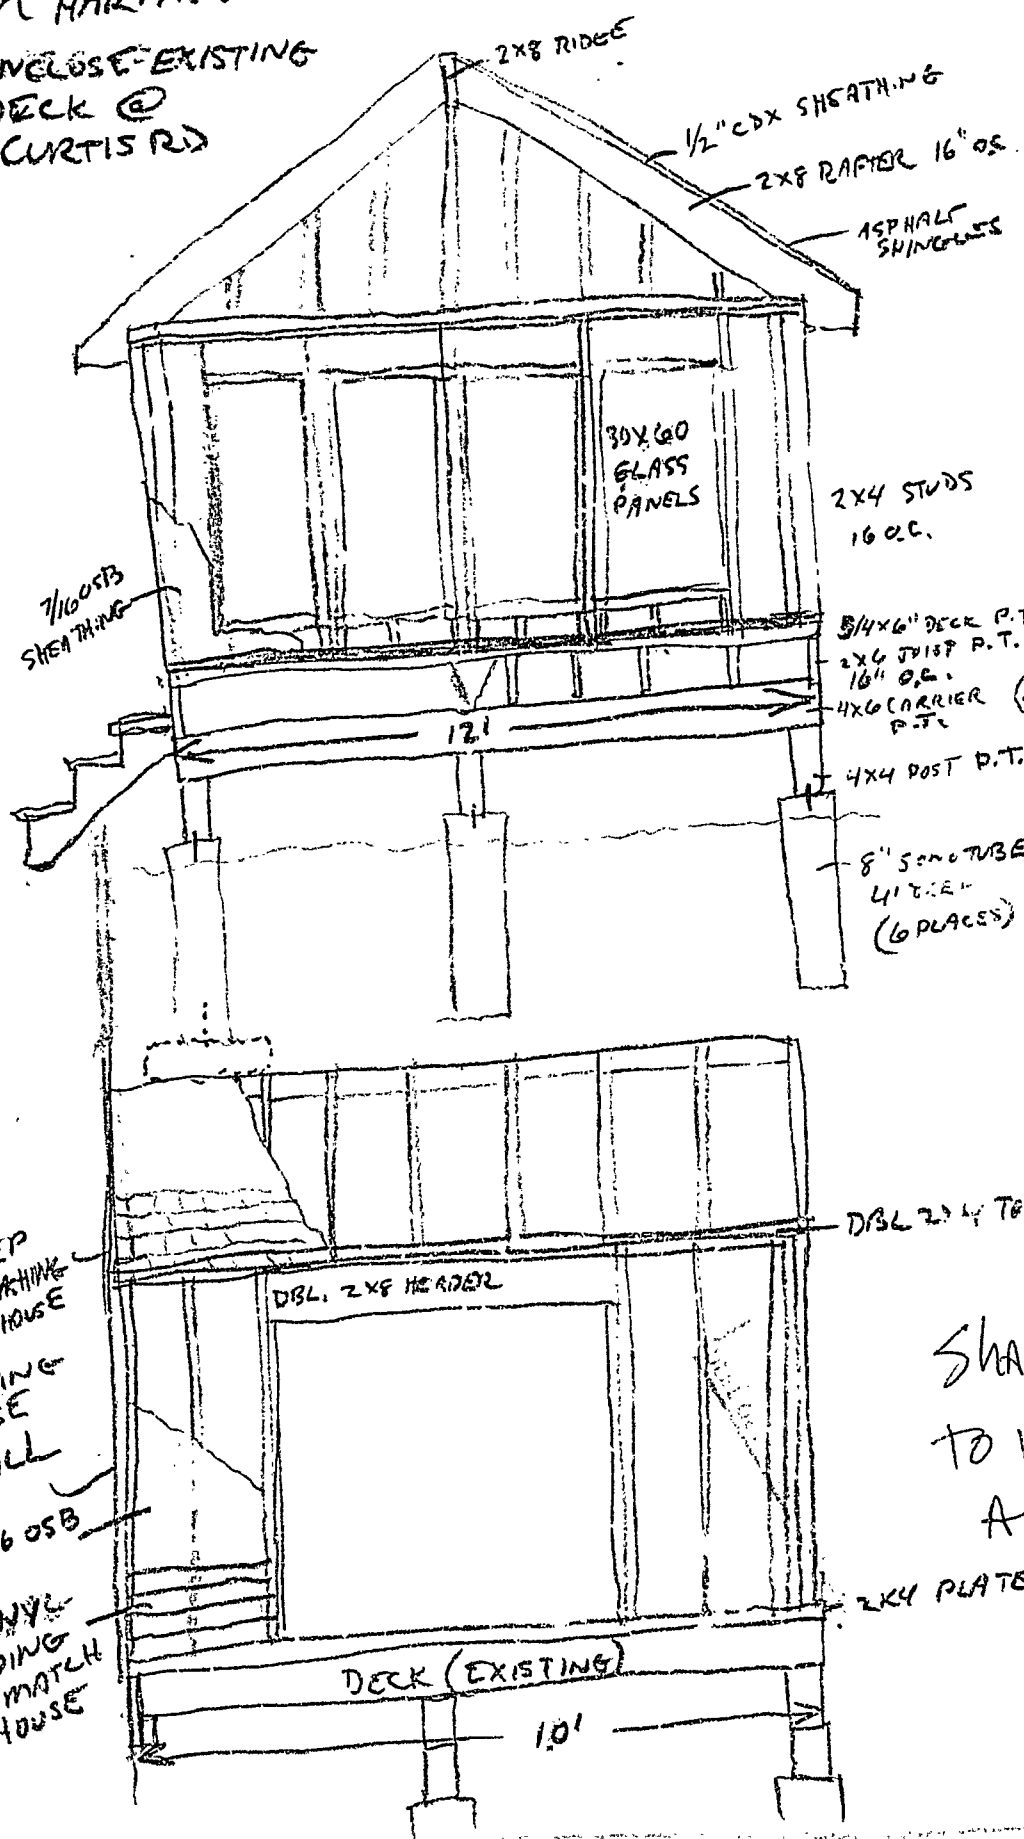 NCLOSE EXISTING
DECK @
CURTIS RD
2X8 RIDGE
1/2" CDX SHEATHING
2X8 RAFTER 16" O.C.
ASPHALT
SHINGLES
30X60
GLASS
PANELS
2X4 STUDS
16 O.C.
7/16 OSB
SHEATHING
5/4X6" DECK P.T.
2X6 JOIST P.T.
16" O.C.
4X6 CARRIER
P.T.
12'
4X4 POST P.T.
8" SONOTUBE
4'
(6 PLACES)
DBL 2X4
HOUSE
DBL. 2X8 HEADER
SHA
TO
A
6 OSB
2X4 PLATE
MATCH
HOUSE
DECK (EXISTING)
10'